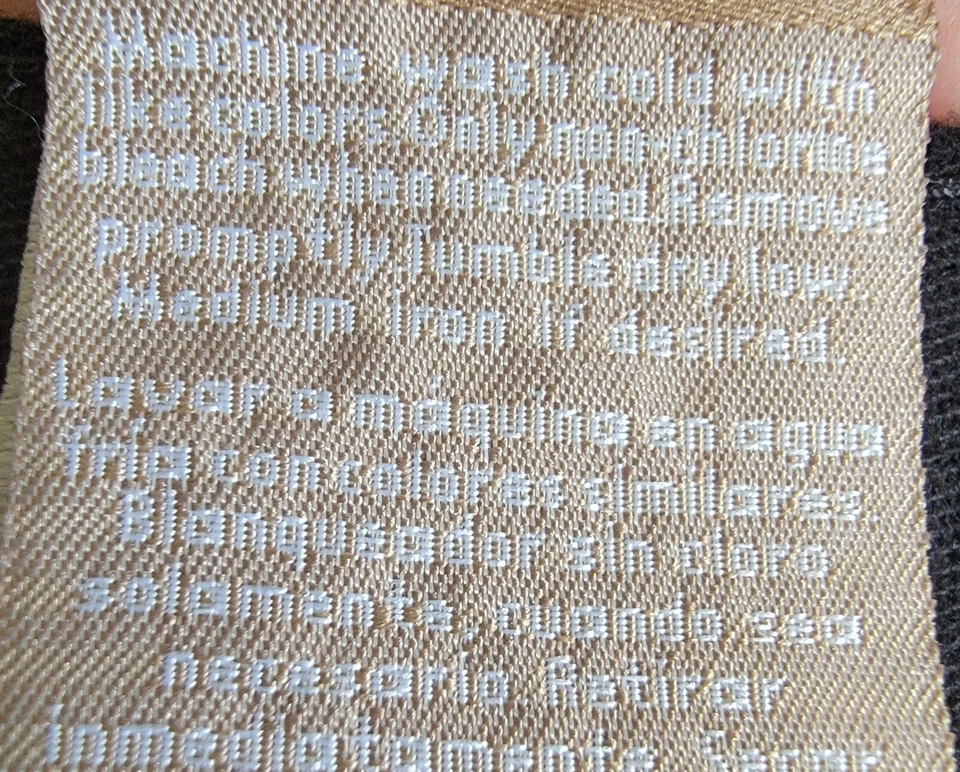 Machine wash cold with
like colors. Only non-chlorine
bleach when needed. Remove
promptly. Tumble dry low.
Medium iron if desired.
Lavar a máquina en agua
fría con colores similares.
Blanqueador sin cloro
solamente, cuando sea
necesario. Retirar
inmediatamente. Secar